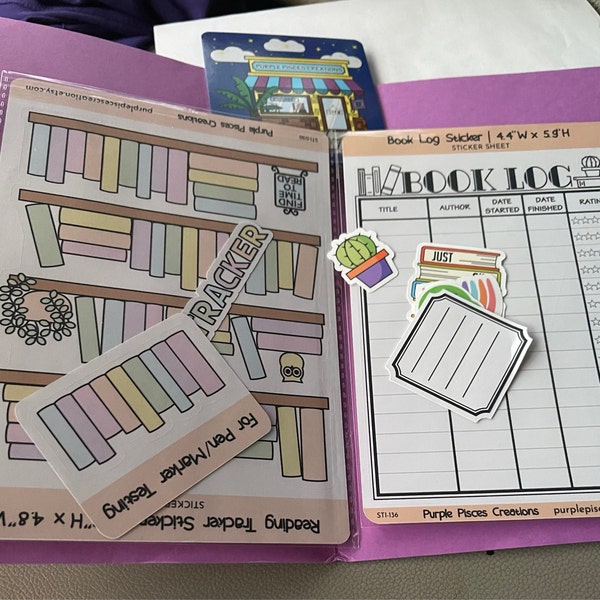 PURPLE PISCES CREATIONS
purplepiscescreations.etsy.com
Purple Pisces Creations
FIND
TIME
TO
READ
TRACKER
For Pen/Marker Testing
Reading Tracker Sticker
STICKER
"H x 4.8"W
Book Log Sticker | 4.4"W x 5.9"H
STICKER SHEET
BOOK LOG
TITLE
AUTHOR
DATE STARTED
DATE FINISHED
RATIN
JUST
STI-136
Purple Pisces Creations
purplepisc